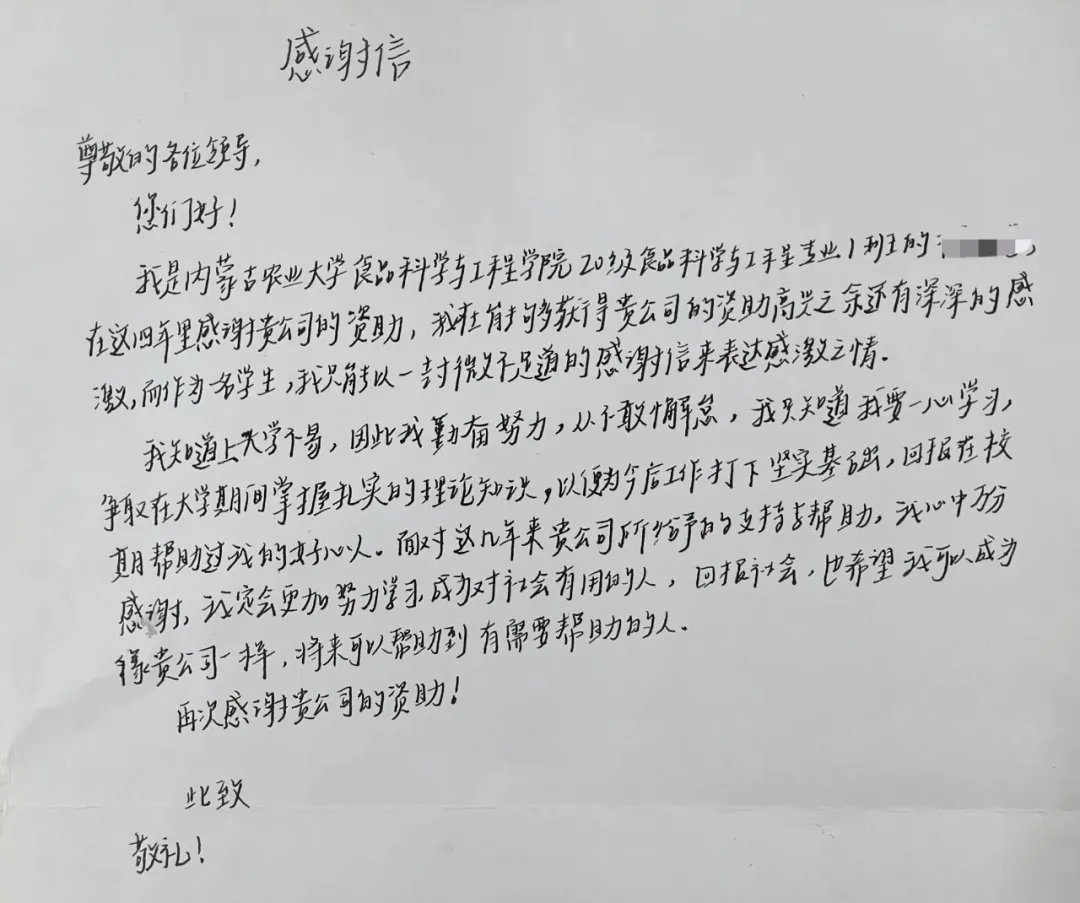 感谢信
尊敬的各位领导,
您们好!
我是内蒙古农业大学食品科学与工程学院20级食品科学与工程专业1班的
在这四年里感谢贵公司的资助,我在能够获得贵公司的资助高兴之余还有深深的感
激,而作为一名学生,我只能以一封微不足道的感谢信来表达感激之情.
我知道上大学不易,因此我勤奋努力,从不敢懈怠,我只知道我要一心学习,
争取在大学期间掌握扎实的理论知识,以便为今后工作打下坚实基础,回报在校
期帮助过我的好心人.面对这几年来贵公司所给予的支持与帮助,我心中万分
感谢,我定会更加努力学习,成为对社会有用的人,回报社会,也希望我可以成为
像贵公司一样,将来可以帮助到有需要帮助的人.
再次感谢贵公司的资助!
此致
敬礼!